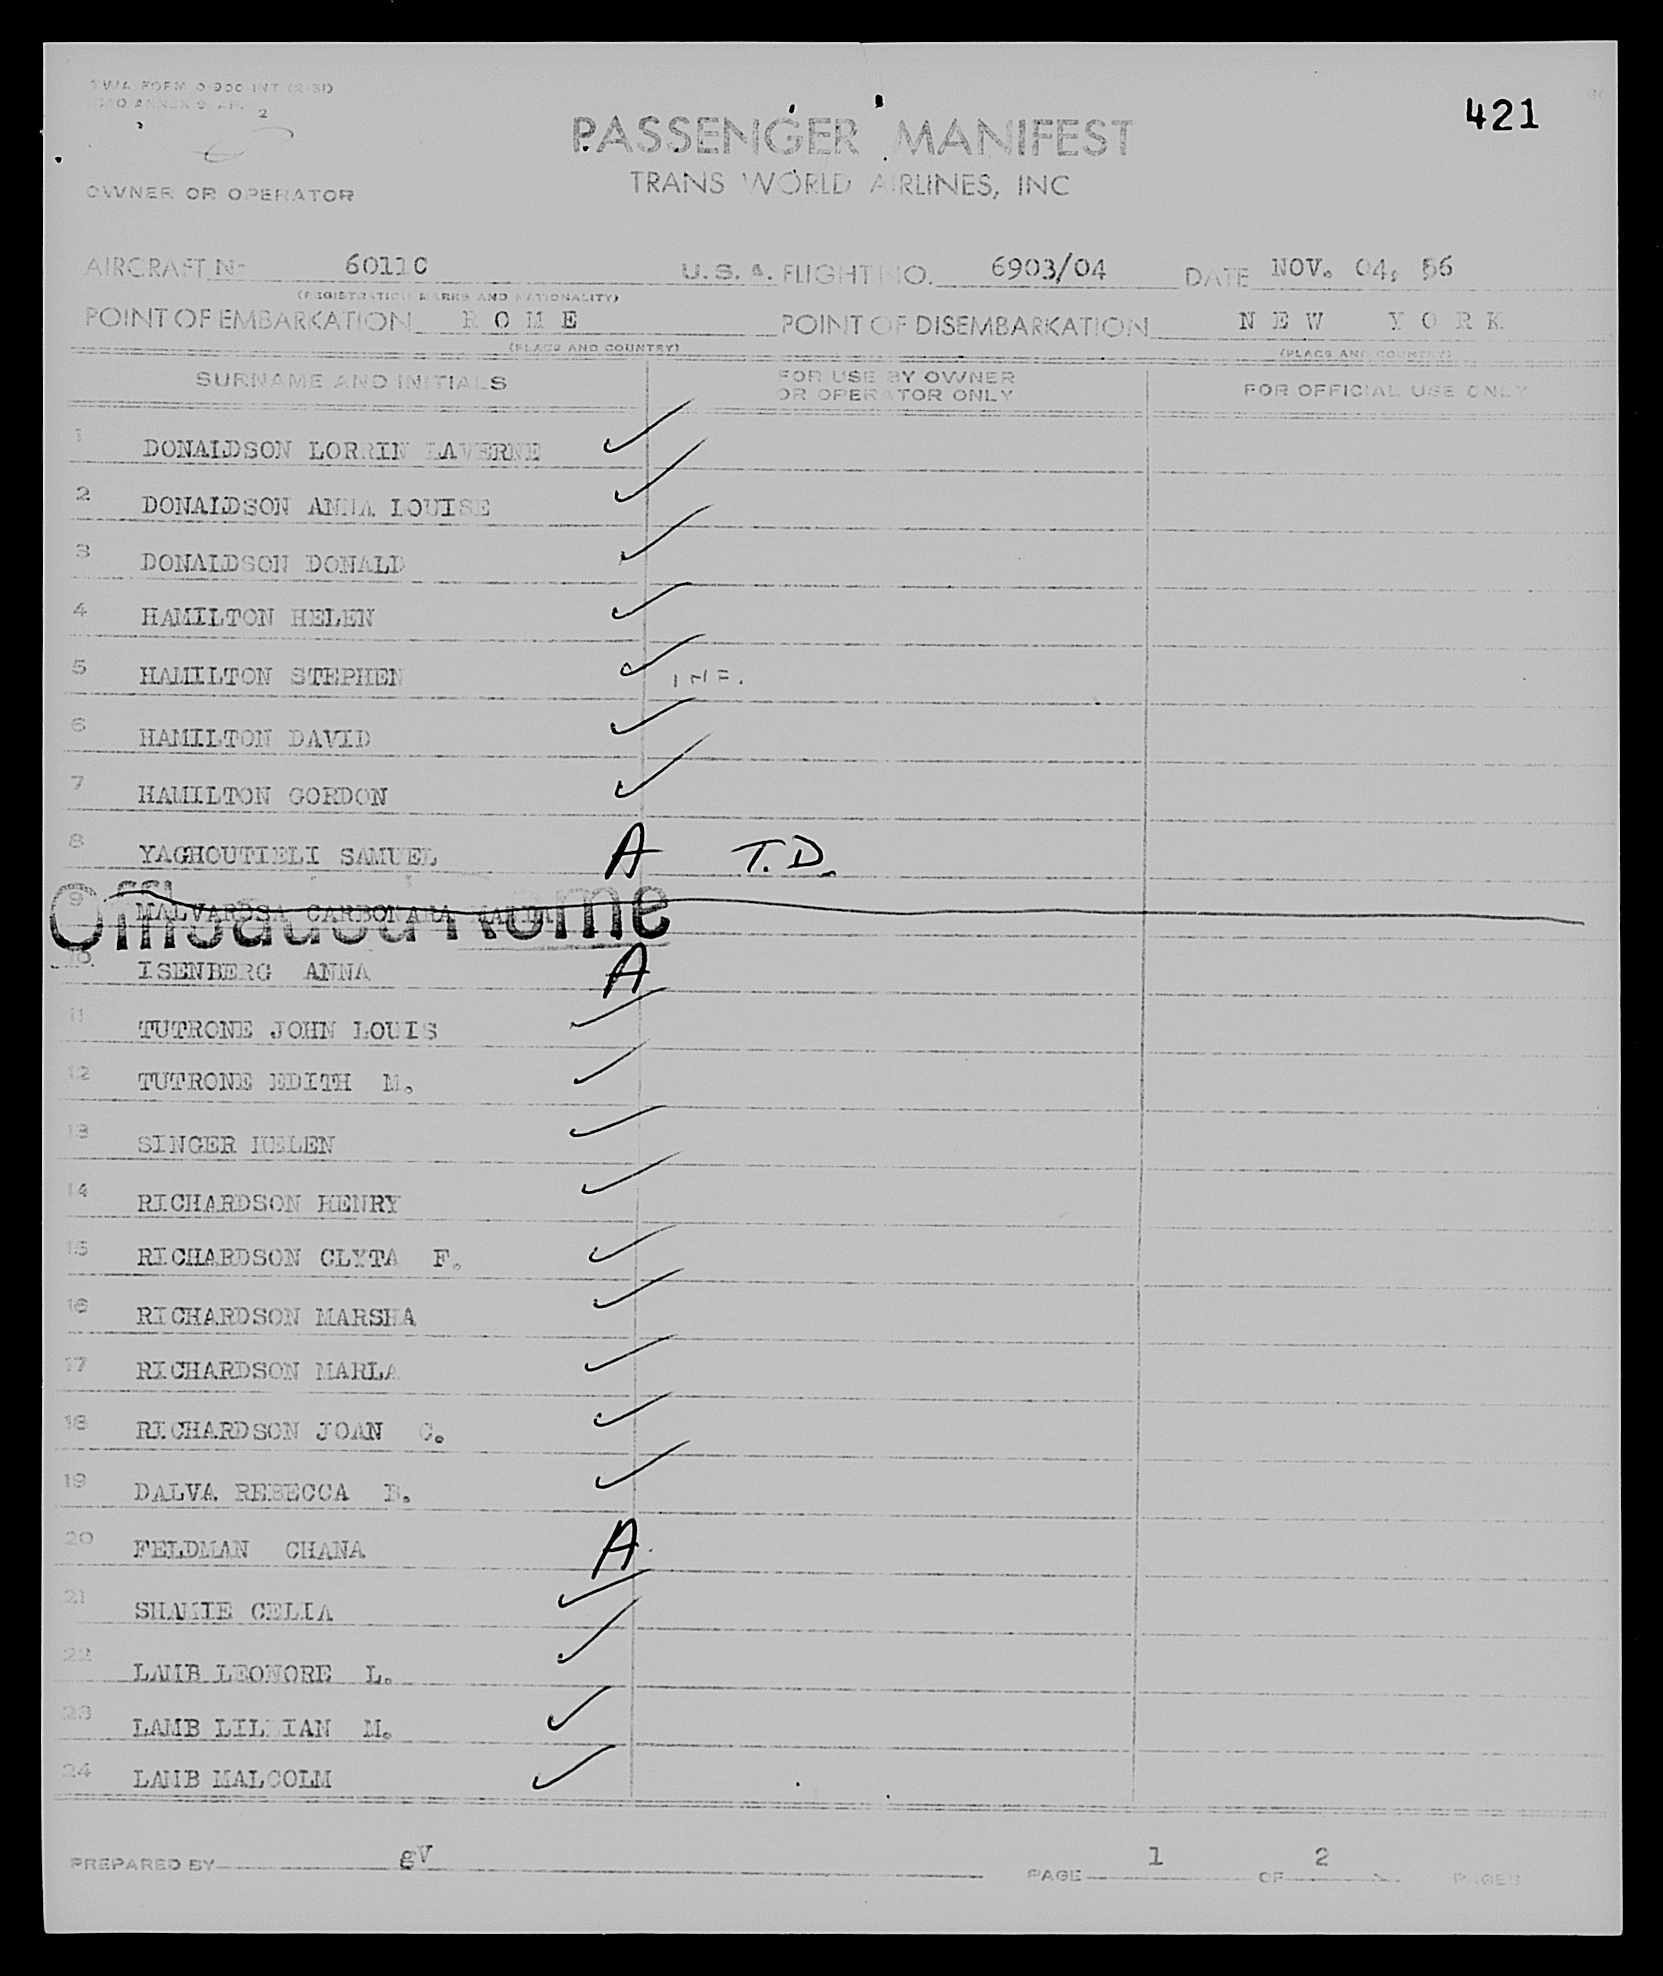 TWA FORM
421
PASSENGER MANIFEST
TRANS WORLD AIRLINES, INC
OWNER OR OPERATOR
AIRCRAFT No 60110 U. S. A. FLIGHT NO. 6903/04 DATE NOV. 04, 56
(REGISTRATION MARKS AND NATIONALITY)
POINT OF EMBARKATION R O M E POINT OF DISEMBARKATION N E W Y O R K
(PLACE AND COUNTRY) (PLACE AND COUNTRY)
SURNAME AND INITIALS FOR USE BY OWNER OR OPERATOR ONLY FOR OFFICIAL USE ONLY
1 DONALDSON LORRIN LAVERNE ✓
2 DONALDSON ANNA LOUISE ✓
3 DONALDSON DONALD ✓
4 HAMILTON HELEN ✓
5 HAMILTON STEPHEN ✓ INF.
6 HAMILTON DAVID ✓
7 HAMILTON GORDON ✓
8 YAGHOUTIELI SAMUEL A T.D.
9 MALVAROSA CARBONARA
Offloaded Rome
10 ISENBERG ANNA A
11 TUTRONE JOHN LOUIS ✓
12 TUTRONE EDITH M. ✓
13 SINGER HELEN ✓
14 RICHARDSON HENRY ✓
15 RICHARDSON CLYTA F. ✓
16 RICHARDSON MARSHA ✓
17 RICHARDSON MARLA ✓
18 RICHARDSON JOAN C. ✓
19 DALVA REBECCA B. ✓
20 FELDMAN CHANA A
21 SHAMIE CELIA ✓
22 LAMB LEONORE L. ✓
23 LAMB LILLIAN M. ✓
24 LAMB MALCOLM ✓
PREPARED BY gV PAGE 1 OF 2 PAGES